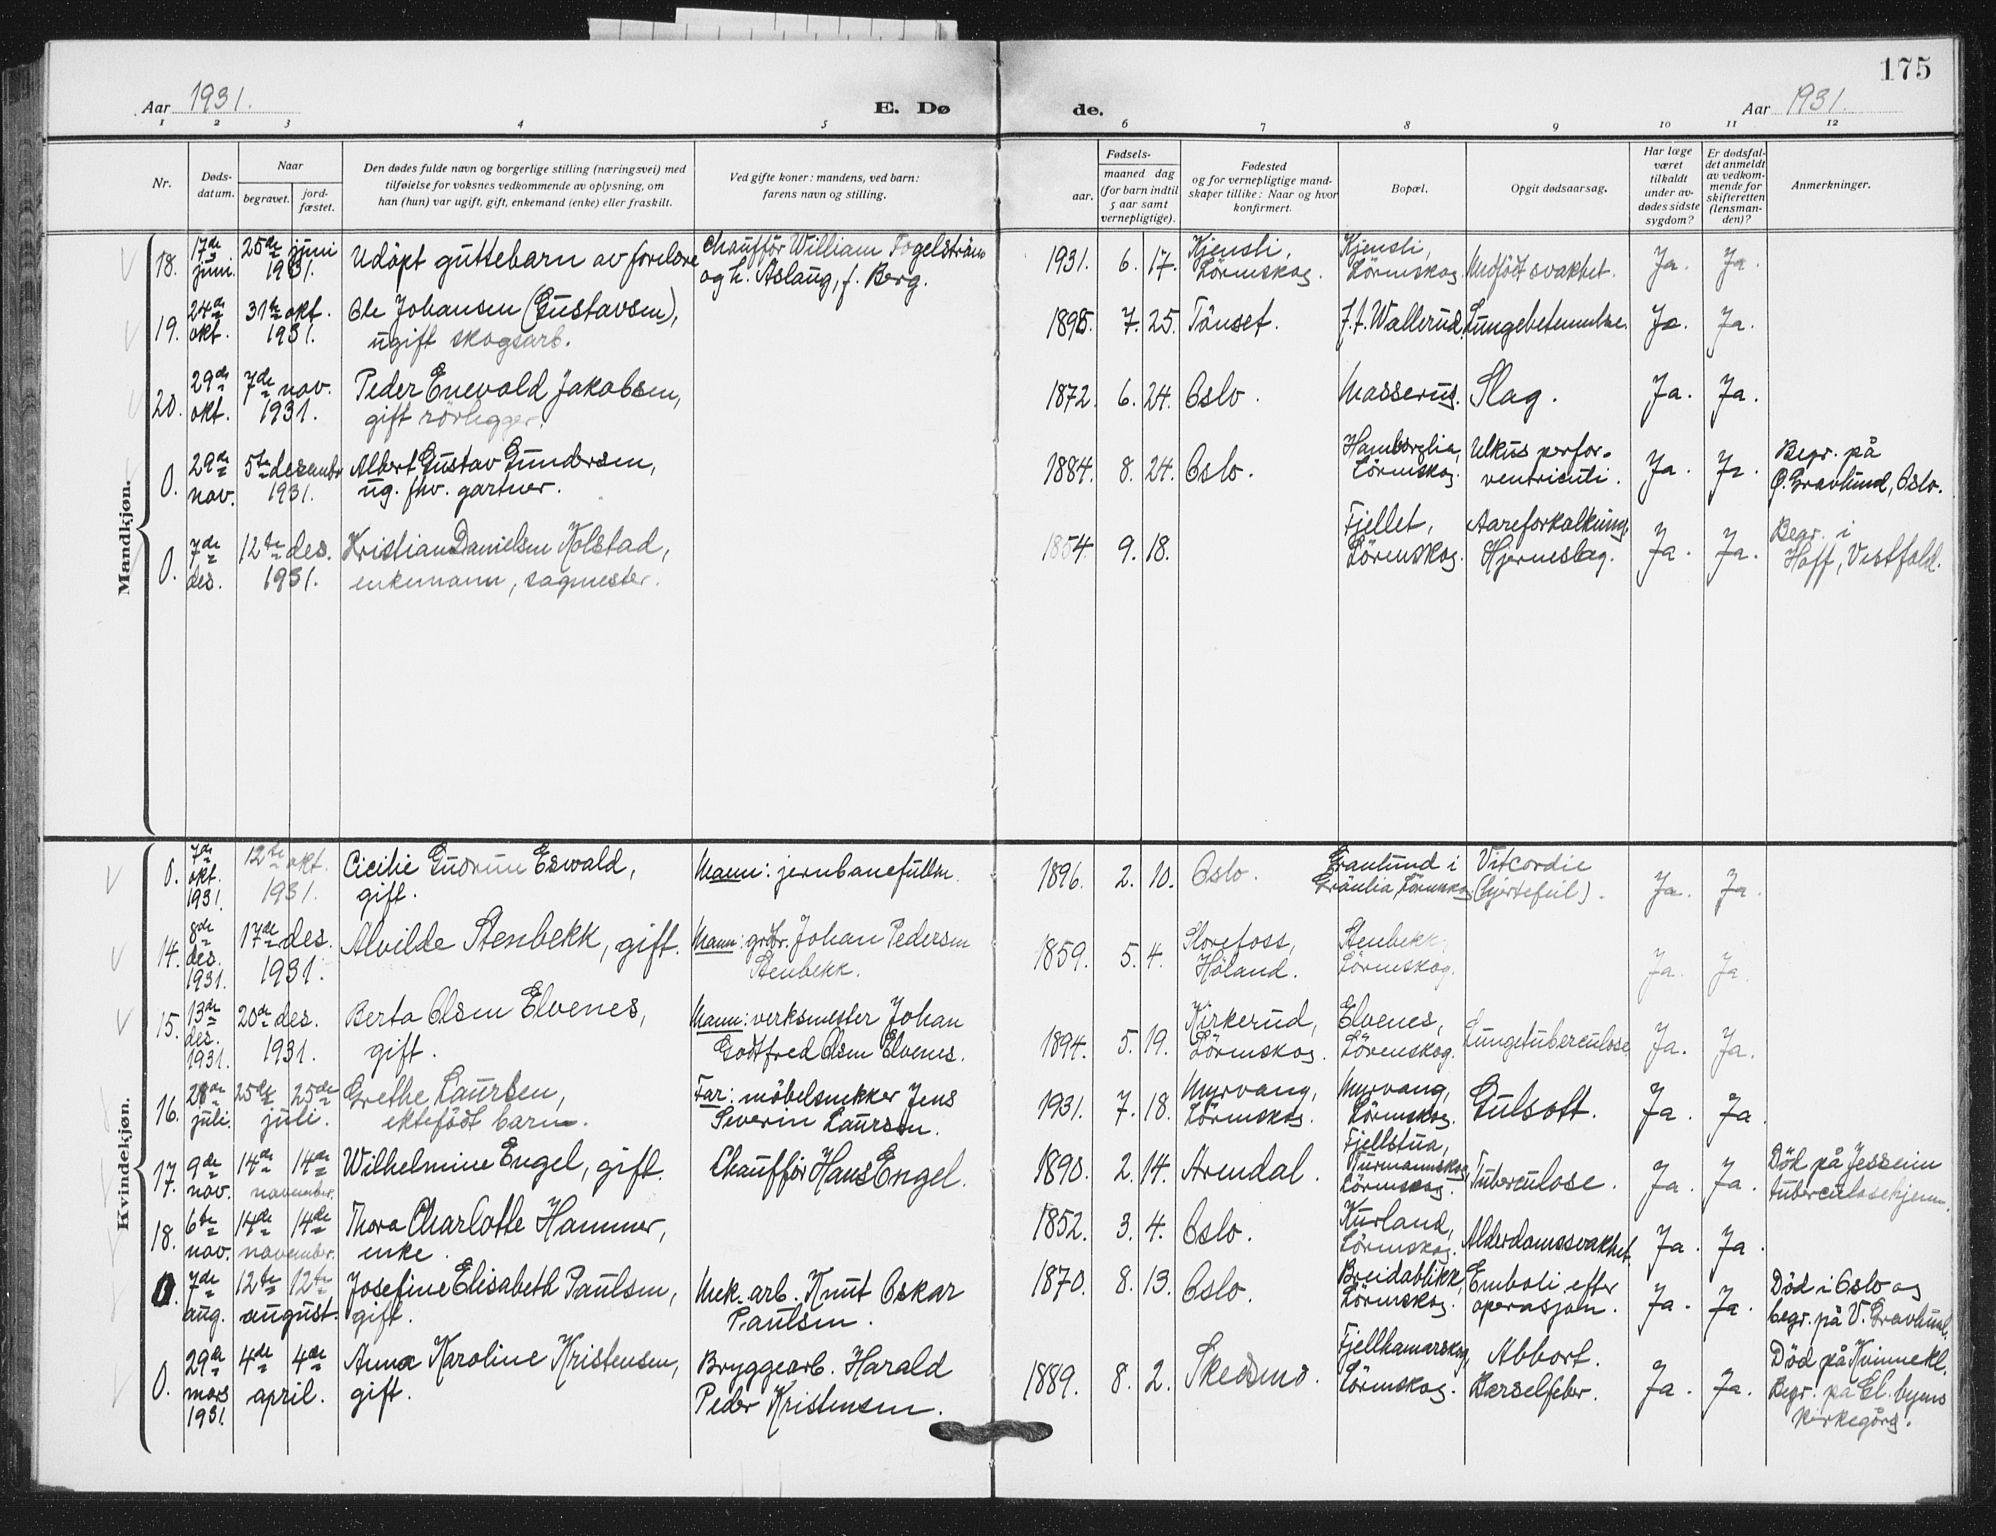 175
Aar 1931. E. Dø de. Aar 1931.
1 2 3 4 5 6 7 8 9 10 11 12
Nr.
Døds-
datum.
Naar
begravet.
jord-
fæstet.
Den dødes fulde navn og borgerlige stilling (næringsvei) med
tilføielse for voksnes vedkommende av oplysning, om
han (hun) var ugift, gift, enkemand (enke) eller fraskilt.
Ved gifte koner: mandens, ved barn:
farens navn og stilling.
Fødsels-
aar.
maaned dag
(for barn indtil
5 aar samt
vernepligtige).
Fødested
og for vernepligtige mand-
skaper tillike: Naar og hvor
konfirmert.
Bopæl.
Opgit dødsaarsag.
Har læge
været
tilkaldt
under av-
dødes sidste
sygdom?
Er dødsfal-
det anmeldt
av vedkom-
mende for
skifteretten
(lensman-
den)?
Anmerkninger.
Mandkjøn.
18. 17de juni. 25de juni 1931. Udöpt guttebarn av foreldre Chaufför William Fogelström
og h. Aslaug, f. Berg. 1931. 6. 17. Kjensli, Lörenskog. Kjensli, Lörenskog Medfödt svakhet. Ja. Ja.
19. 24de okt. 31te okt. 1931. Ole Johansen (Gustavsen),
ugift skogsarb. 1895. 7. 25. Tönset. Wallerud. Lungebetennelse. Ja. Ja.
20. 29de okt. 7de nov. 1931. Peder Enevold Jakobsen,
gift rörlegger. 1872. 6. 24. Oslo. Masserud. Slag. Ja. Ja.
0. 29de nov. 5te desember 1931. Albert Gustav Gundersen,
ug. fhv. gartner. 1884. 8. 24. Oslo. Hamborglia, Lörenskog. Ulkus perfor.
ventriculi. Ja. Ja. Begr. på
Ö. Gravlund, Oslo.
0. 7de des. 12te des. 1931. Kristian Danielsen Kolstad,
enkemann, sagmester. 1854 9. 18. Fjellet, Lörenskog. Aareforkalkning,
Hjerneslag. Ja. Ja. Begr. i
Hoff, Vestfold.
Kvindekjøn.
0. 7de okt. 1931. 12te okt. 1931. Cicilie Gudrun Eswald,
gift. Mann: jernbanefullm. 1896. 2. 10. Oslo. Granlund i
Grånlia, Lörenskog. Vitcordie
(hjertefeil). Ja. Ja.
14. 8de des. 1931. 17de des. 1931. Alvilde Stenbekk, gift. Mann: grdbr. Johan Pedersen
Stenbekk. 1859. 5. 4. Slorefoss,
Höland. Stenbekk,
Lörenskog. Ja. Ja.
15. 13de des. 1931. 20de des. 1931. Berta Olsen Elvenes,
gift. Mann: verksmester Johan
Godtfred Olsen Elvenes. 1894. 5. 19. Kirkerud,
Lörenskog. Elvenes,
Lörenskog. Lungetuberculose. Ja. Ja.
16. juli. 25de 25de juli. Grethe Laursen,
ektefödt barn. Far: möbelsnekker Jens
Severin Laursen. 1931. 7. 18. Myrvang,
Lörenskog. Myrvang,
Lörenskog. Gulsott. Ja. Ja
17. 9de nov. 14de 14de november. Wilhelmine Engel, gift. Chaufför Hans Engel. 1890. 2. 14. Arendal. Fjellstua,
Lörenskog. Tuberculose. Ja. Ja. Död på Jessheim
tuberculosehjem.
18. 6te nov. 14de 14de november. Thora Charlotte Hammer,
enke. 1852. 3. 4. Oslo. Kurland,
Lörenskog. Alderdomssvakhet. Ja. Ja.
0. 7de aug. 12te 12te august. Josefine Elisabeth Paulsen,
gift. Mek. arb. Knut Oskar
Paulsen. 1870. 8. 13. Oslo. Breidablikk,
Lörenskog. Emboli efter
operasjon. Ja. Ja. Död i Oslo og
begr. på V. Gravlund.
0. 29de mars 1931. 4de 4de april. Anna Karoline Kristensen,
gift. Bryggearb. Harald
Peder Kristensen. 1889. 8. 2. Skedsmo. Fjellhamarskog,
Lörenskog. Abbort.
Barselfeber. Ja. Ja. Död på Kvinnekl.
Begr. på Gl. byens
kirkegård.